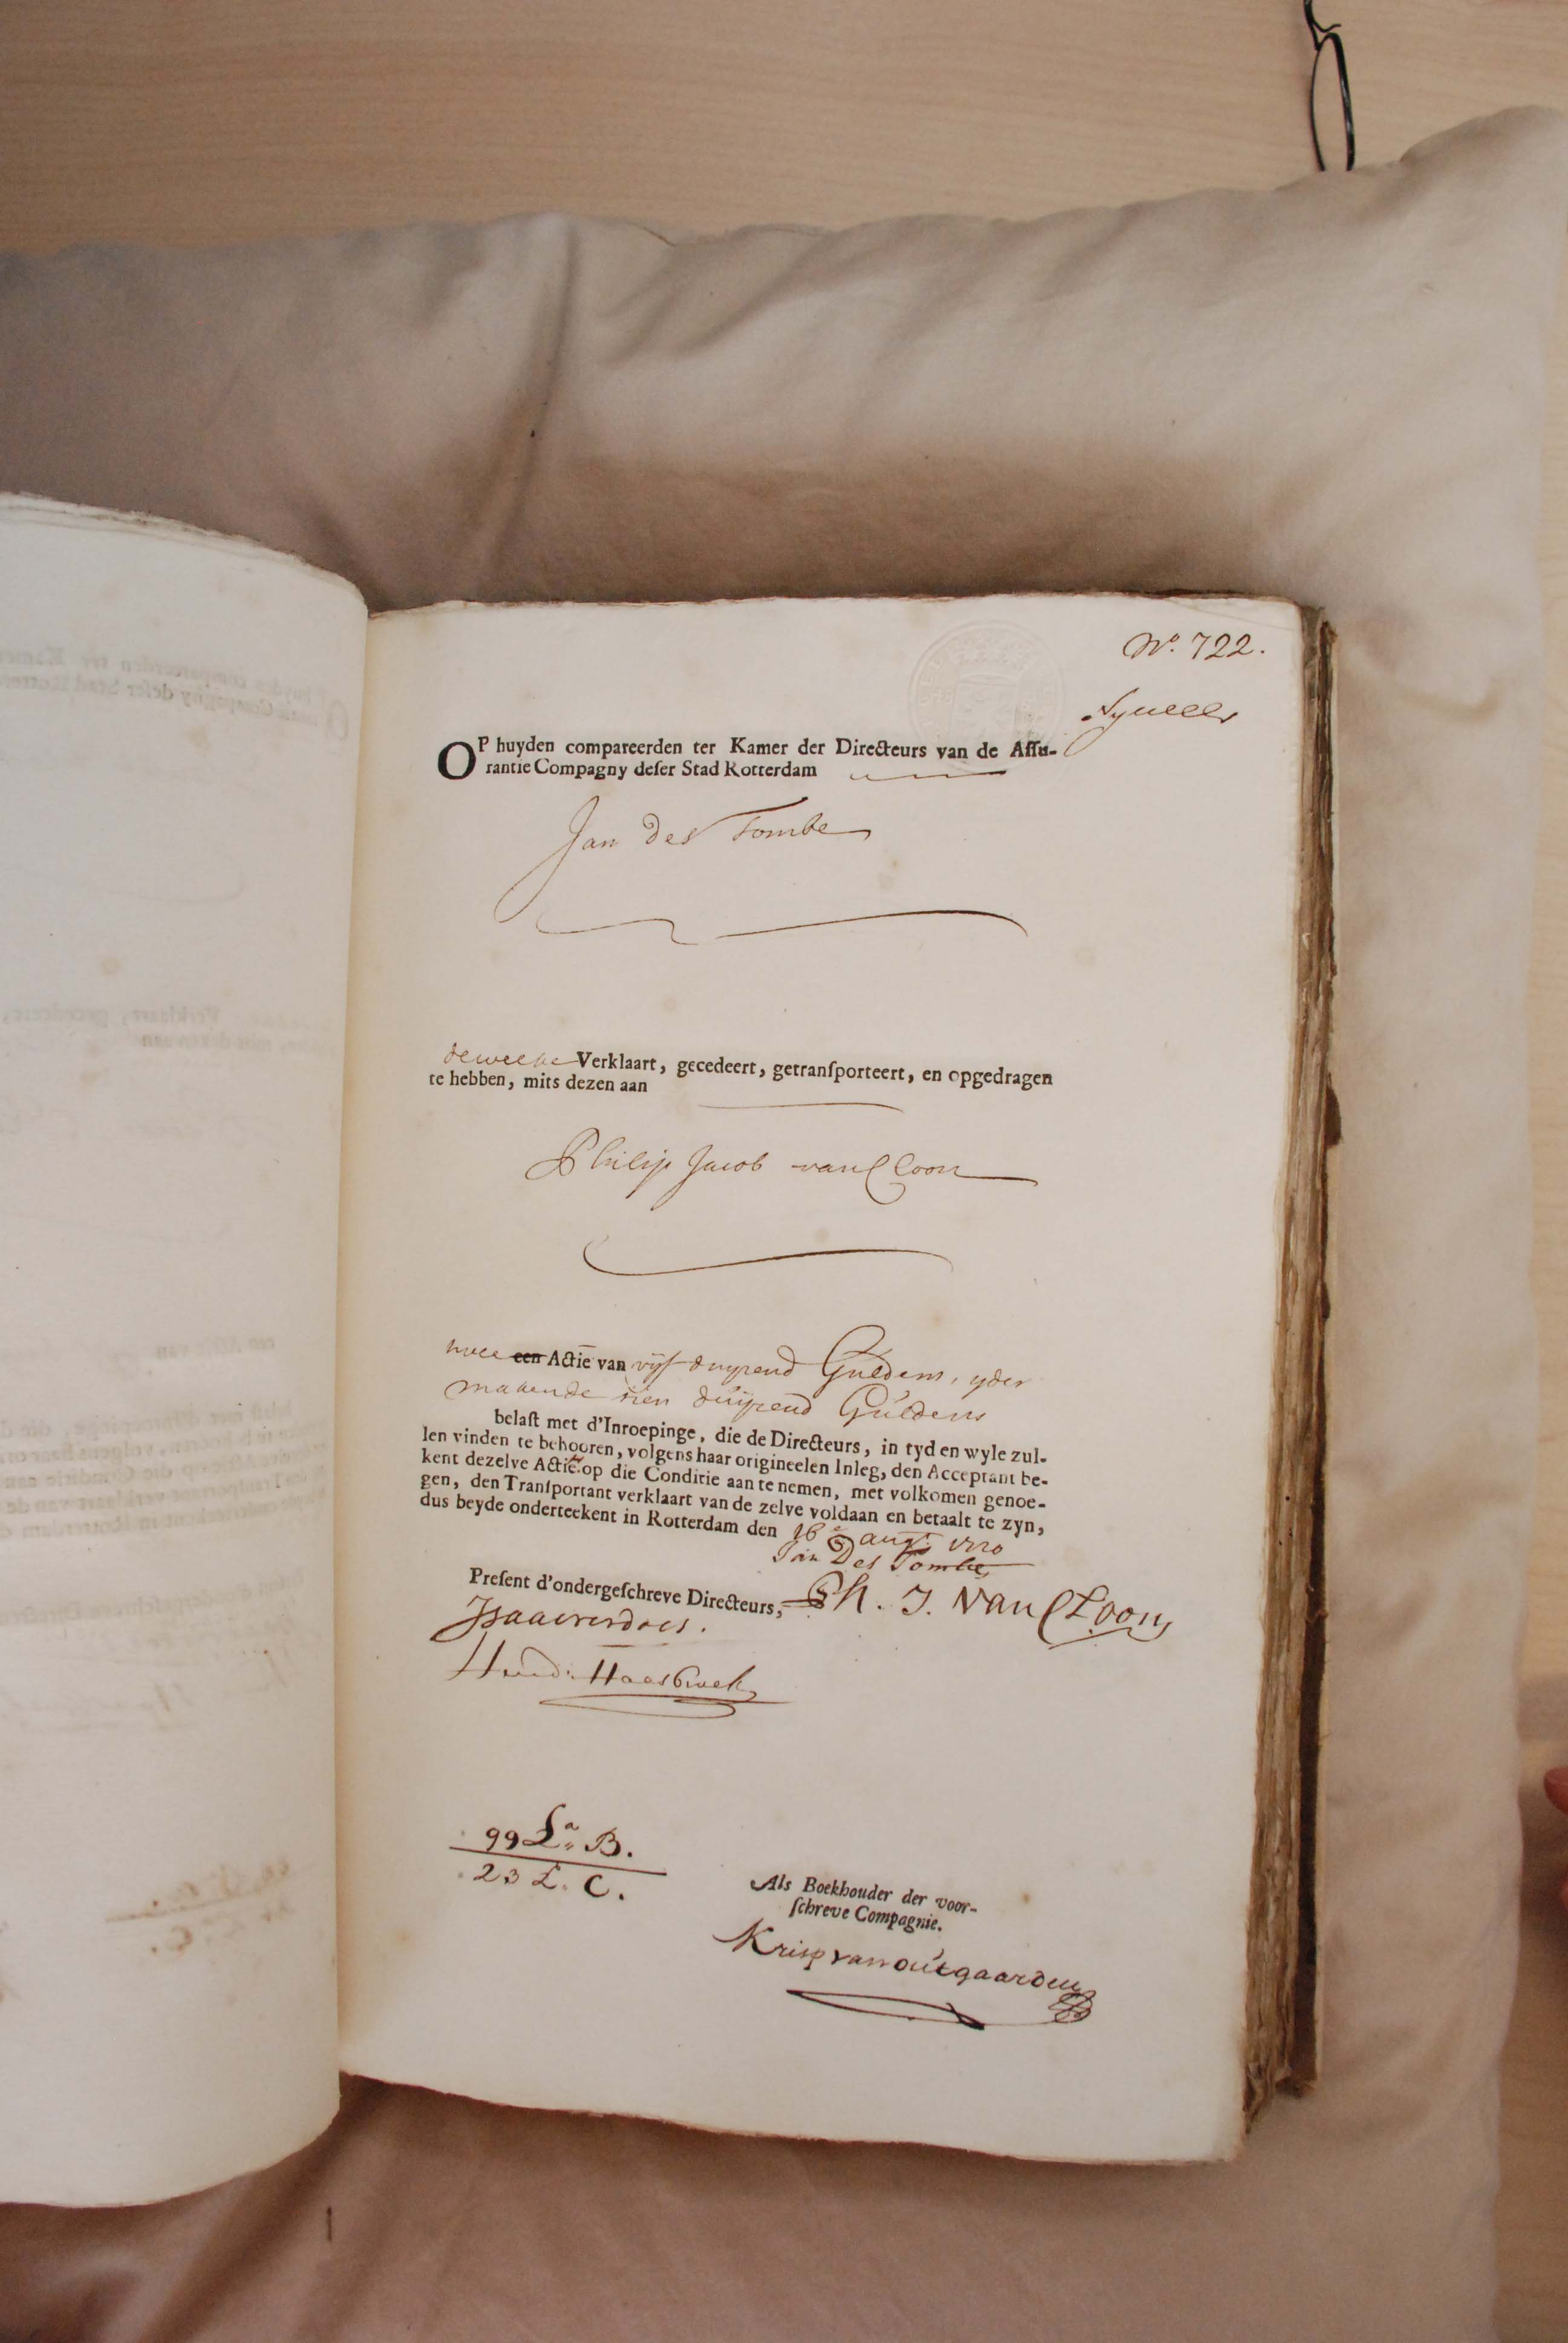 No. 722.
OP huyden compareerden ter Kamer der Directeurs van de Assu-
rantie Compagny deser Stad Rotterdam
Jan Des Tombe
dewelke Verklaart, gecedeert, getransporteert, en opgedragen
te hebben, mits dezen aan
Philip Jacob van Cloon
twee een Actie van vijf duysend Guldens, yder
makende tien duysend Guldens
belast met d'Inroepinge, die de Directeurs, in tyd en wyle zul-
len vinden te behooren, volgens haar origineelen Inleg, den Acceptant be-
kent dezelve Actie op die Conditie aan te nemen, met volkomen genoe-
gen, den Transportant verklaart van de zelve voldaan en betaalt te zyn,
dus beyde onderteekent in Rotterdam den 16e augt. 1720
Jan Des Tombe
Present d'ondergeschreve Directeurs, Ph. J. van Cloon
Isaac verdoes.
Hend. Haesbroek
99 La. B.
23 L. C.
Als Boekhouder der voor-
schreve Compagnie.
Krisp van outgaarden